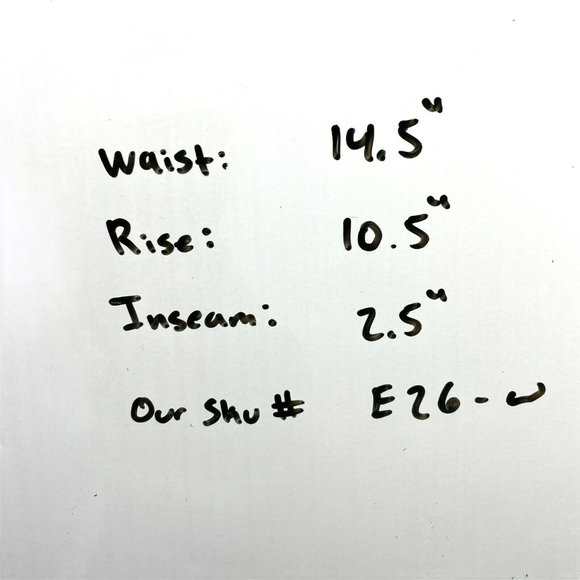 Waist: 14.5"
Rise: 10.5"
Inseam: 2.5"
Our Sku # E26-w